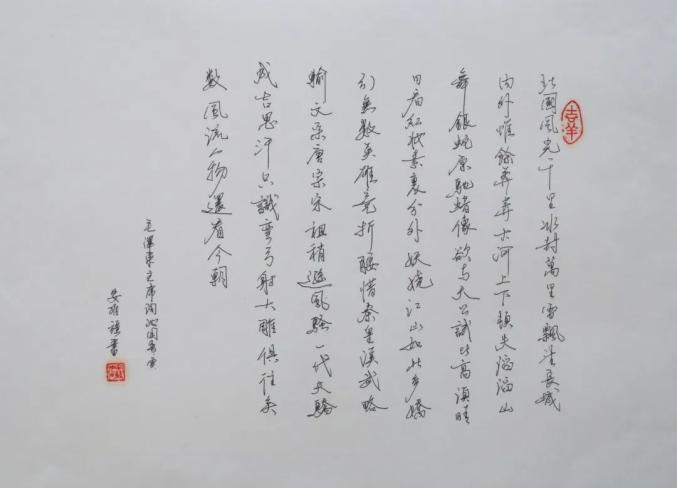 吉羊
北國風光千里冰封萬里雪飄望長城
内外惟餘莽莽大河上下頓失滔滔山
舞銀蛇原馳蜡像欲与天公試比高須晴
日看紅妝素裹分外妖嬈江山如此多嬌
引無數英雄竞折腰惜秦皇漢武略
輸文采唐宗宋祖稍遜風騷一代天驕
成吉思汗只識彎弓射大雕俱往矣
数風流人物還看今朝
毛澤東主席词沁园春雪
安書